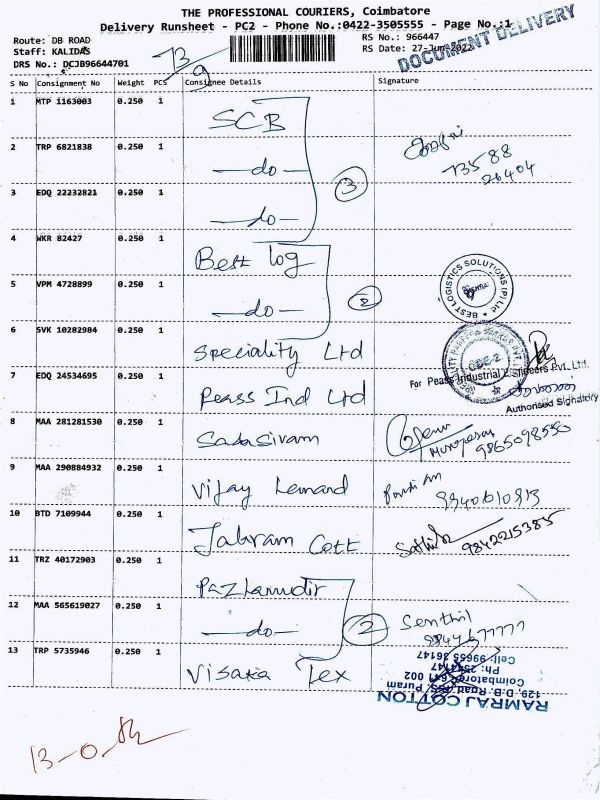 THE PROFESSIONAL COURIERS, Coimbatore
Delivery Runsheet - PC2 - Phone No.:0422-3505555 - Page No.:1
DOCUMENT DELIVERY
Route: DB ROAD
RS No.: 966447
Staff: KALIDAS
RS Date: 27-Jun-2022
DRS No.: DCJB96644701
13/9
S No Consignment No Weight PCS Consignee Details Signature
1 MTP 1163003 0.250 1 SCB
2 TRP 6821838 0.250 1 —do—
73588
26404
3 EDQ 22232821 0.250 1 —do—
3
4 WKR 82427 0.250 1 Best log
5 VPM 4728899 0.250 1 —do—
2
BEST LOGISTICS SOLUTIONS (P) Ltd
6 SVK 10282984 0.250 1 Speciality Ltd
CBE-2
7 EDQ 24534695 0.250 1 Peass Ind Ltd
For Peass Industrial Engineers Pvt. Ltd
Authorised Signatory
8 MAA 281281530 0.250 1 Sadasivam
9865098550
9 MAA 290884932 0.250 1 Vijay Lemand
9940610913
10 BTD 7109944 0.250 1 Jairam Cott
9842215385
11 TRZ 40172903 0.250 1 Pazhamudir
12 MAA 565619027 0.250 1 —do—
2
Senthil
9944677777
13 TRP 5735946 0.250 1 Visaka Tex
RAMRAJ COTTON
129, D.B. Road, R.S. Puram
Coimbatore - 641 002
Ph: 2541147
Cell: 99655 36147
13-0-